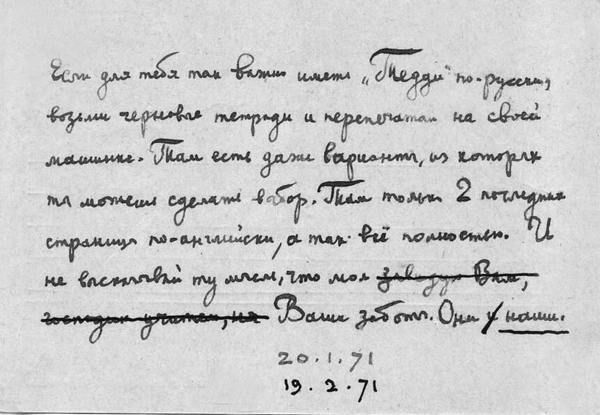 Если для тебя так важно иметь „Тедди“ по-русски,
возьми черновые тетради и перепечатай на своей
машинке. Там есть даже варианты, из которых
ты можешь сделать выбор. Там только 2 последних
страницы по-английски, а так всё полностью. И
не выскакивай ту мчем, что моя Вам,
господин учитель, на Ваши заботы. Они наши.
20.1.71
19.2.71